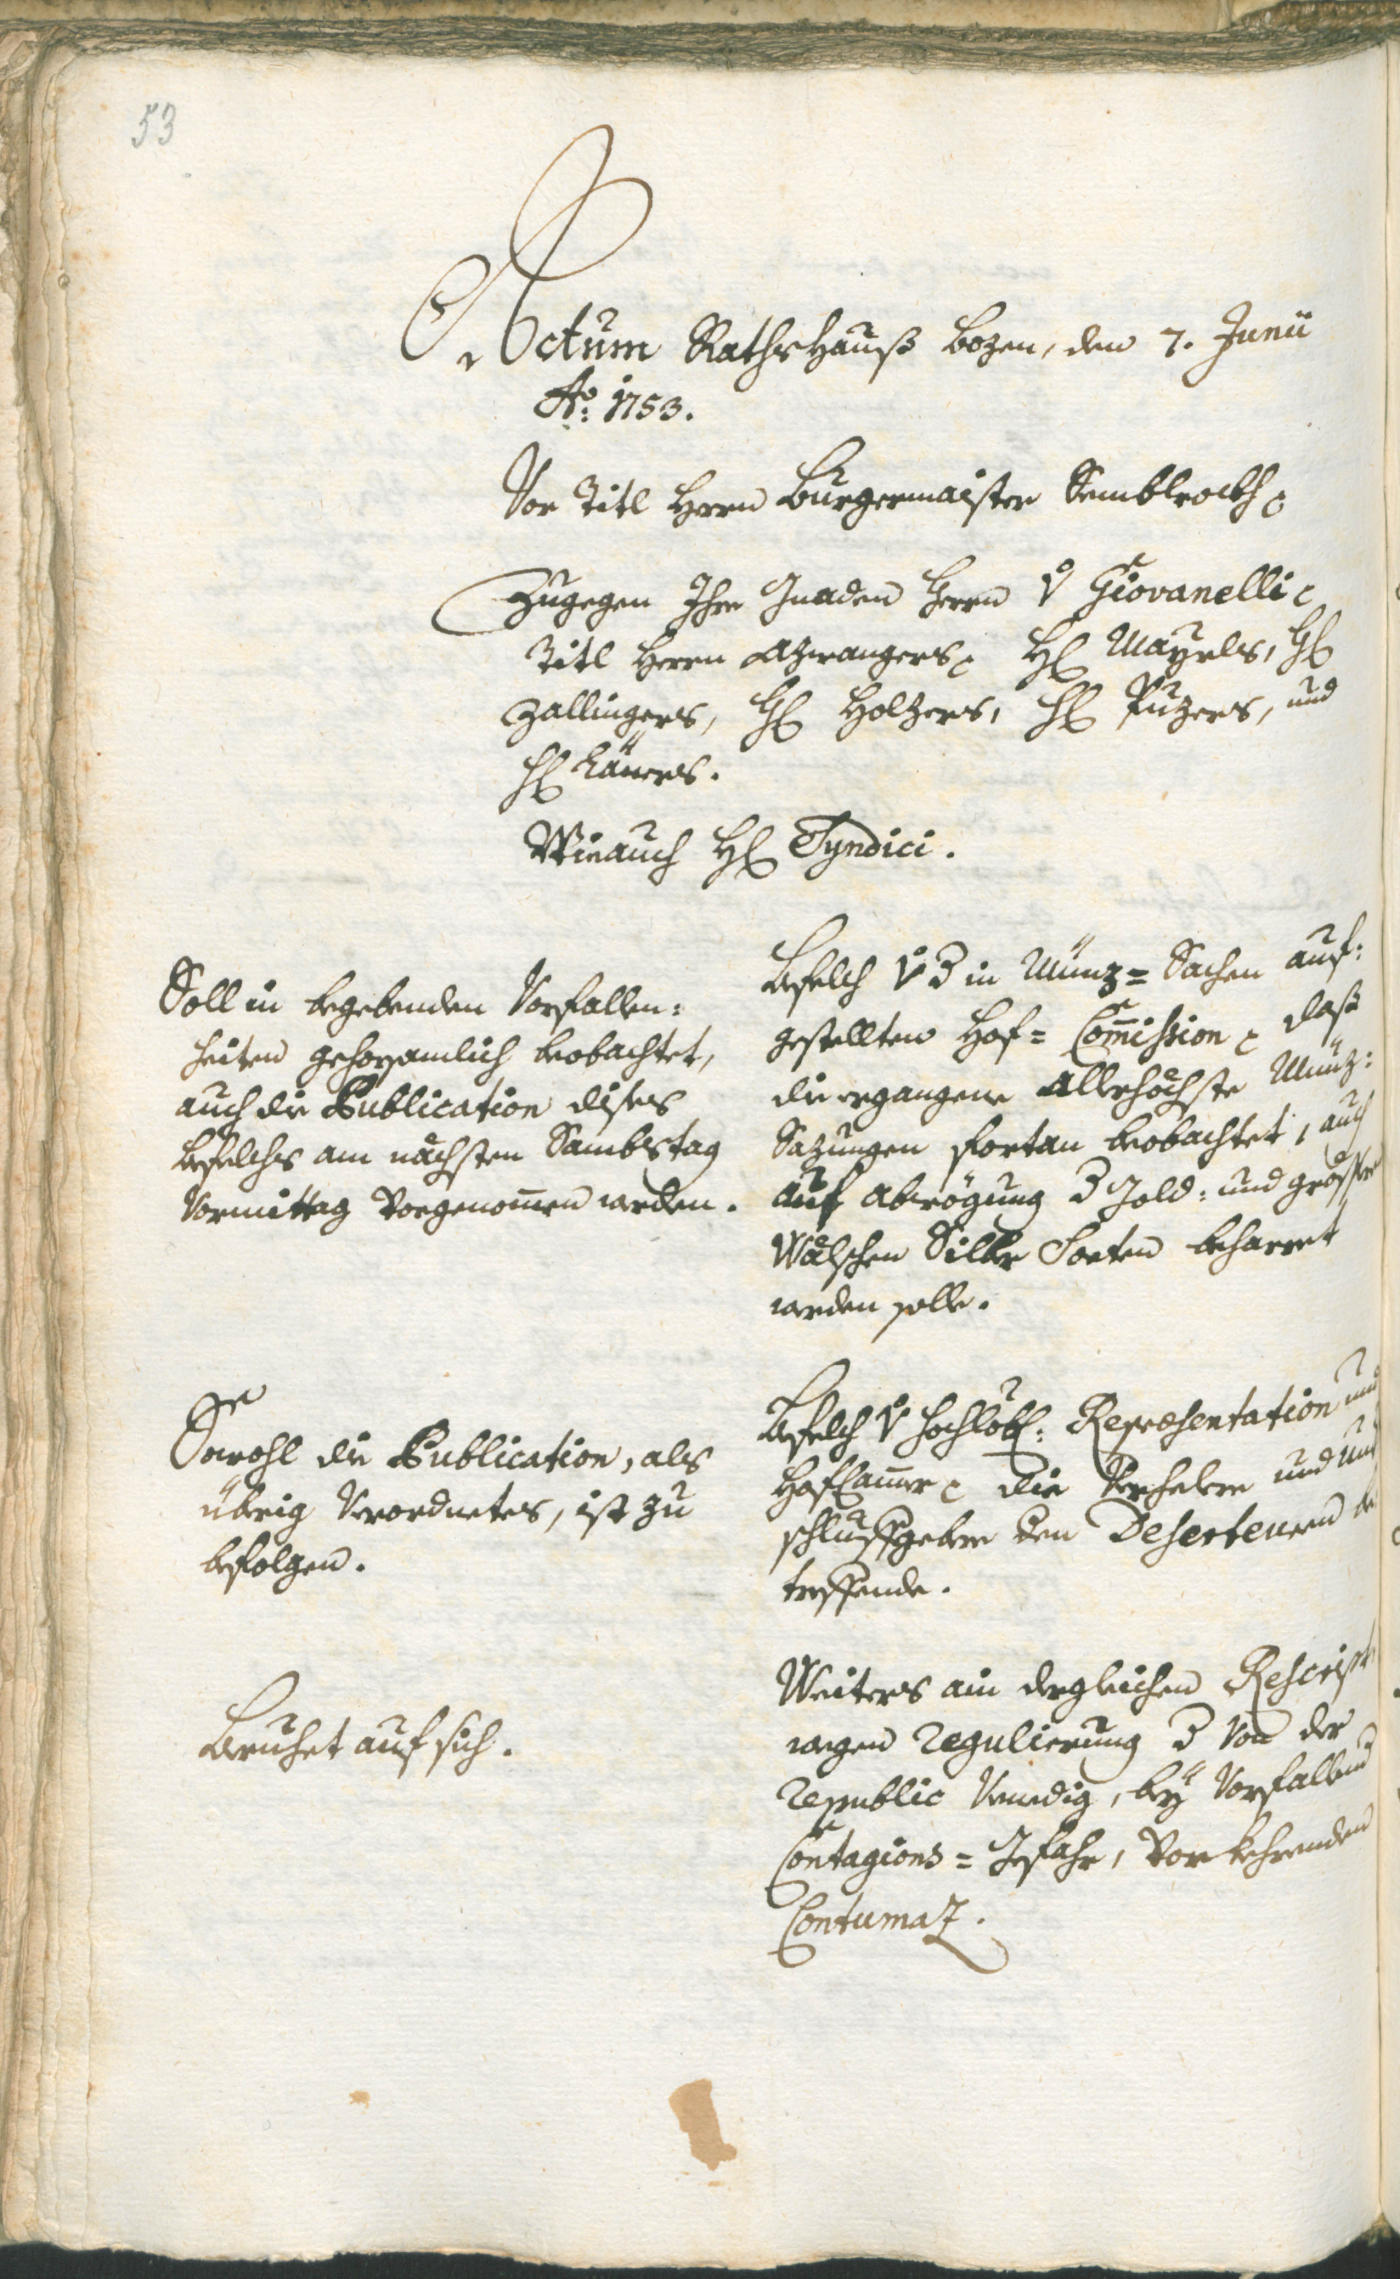 53
Actum Rathshauß Bozen, den 7. Junii
Ao: 1753.
Vor Titl Herrn Burgermaister Semblrockh
Zugegen Ihro Gnaden Herrn v Giovanelli
Titl Herrn Azwangers, H Mayrls, H
Zallingers, H Holzers, H Puzers, und
H
Wie auch H Syndici.
Soll in begebenden Vorfallen:
heiten gehorsamlich beobachtet,
auch die Publication dises
Befelchs am nächsten Sambstag
Vormittag vorgenommen werden.
Befelch v d in Münz= Sachen auf:
gestellten Hof= Commission daß
die ergangene Allerhöchste Münz:
Sazungen fortan beobachtet, auch
auf d Gold: und
Wälschen Silber Sorten beharret
werden solle.
Sowohl die Publication, als
übrig Verordnetes, ist zu
befolgen.
Befelch v hochlöbl: Repræsentation und
HofCammer die und
den Deserteuren be
treffende.
Beruhet auf sich.
Weiters ain dergleichen Rescript
wegen Regulierung d von der
Republic Venedig, bey vorfallend
Contagions= Gefahr, vorkehrenden
Contumaz.